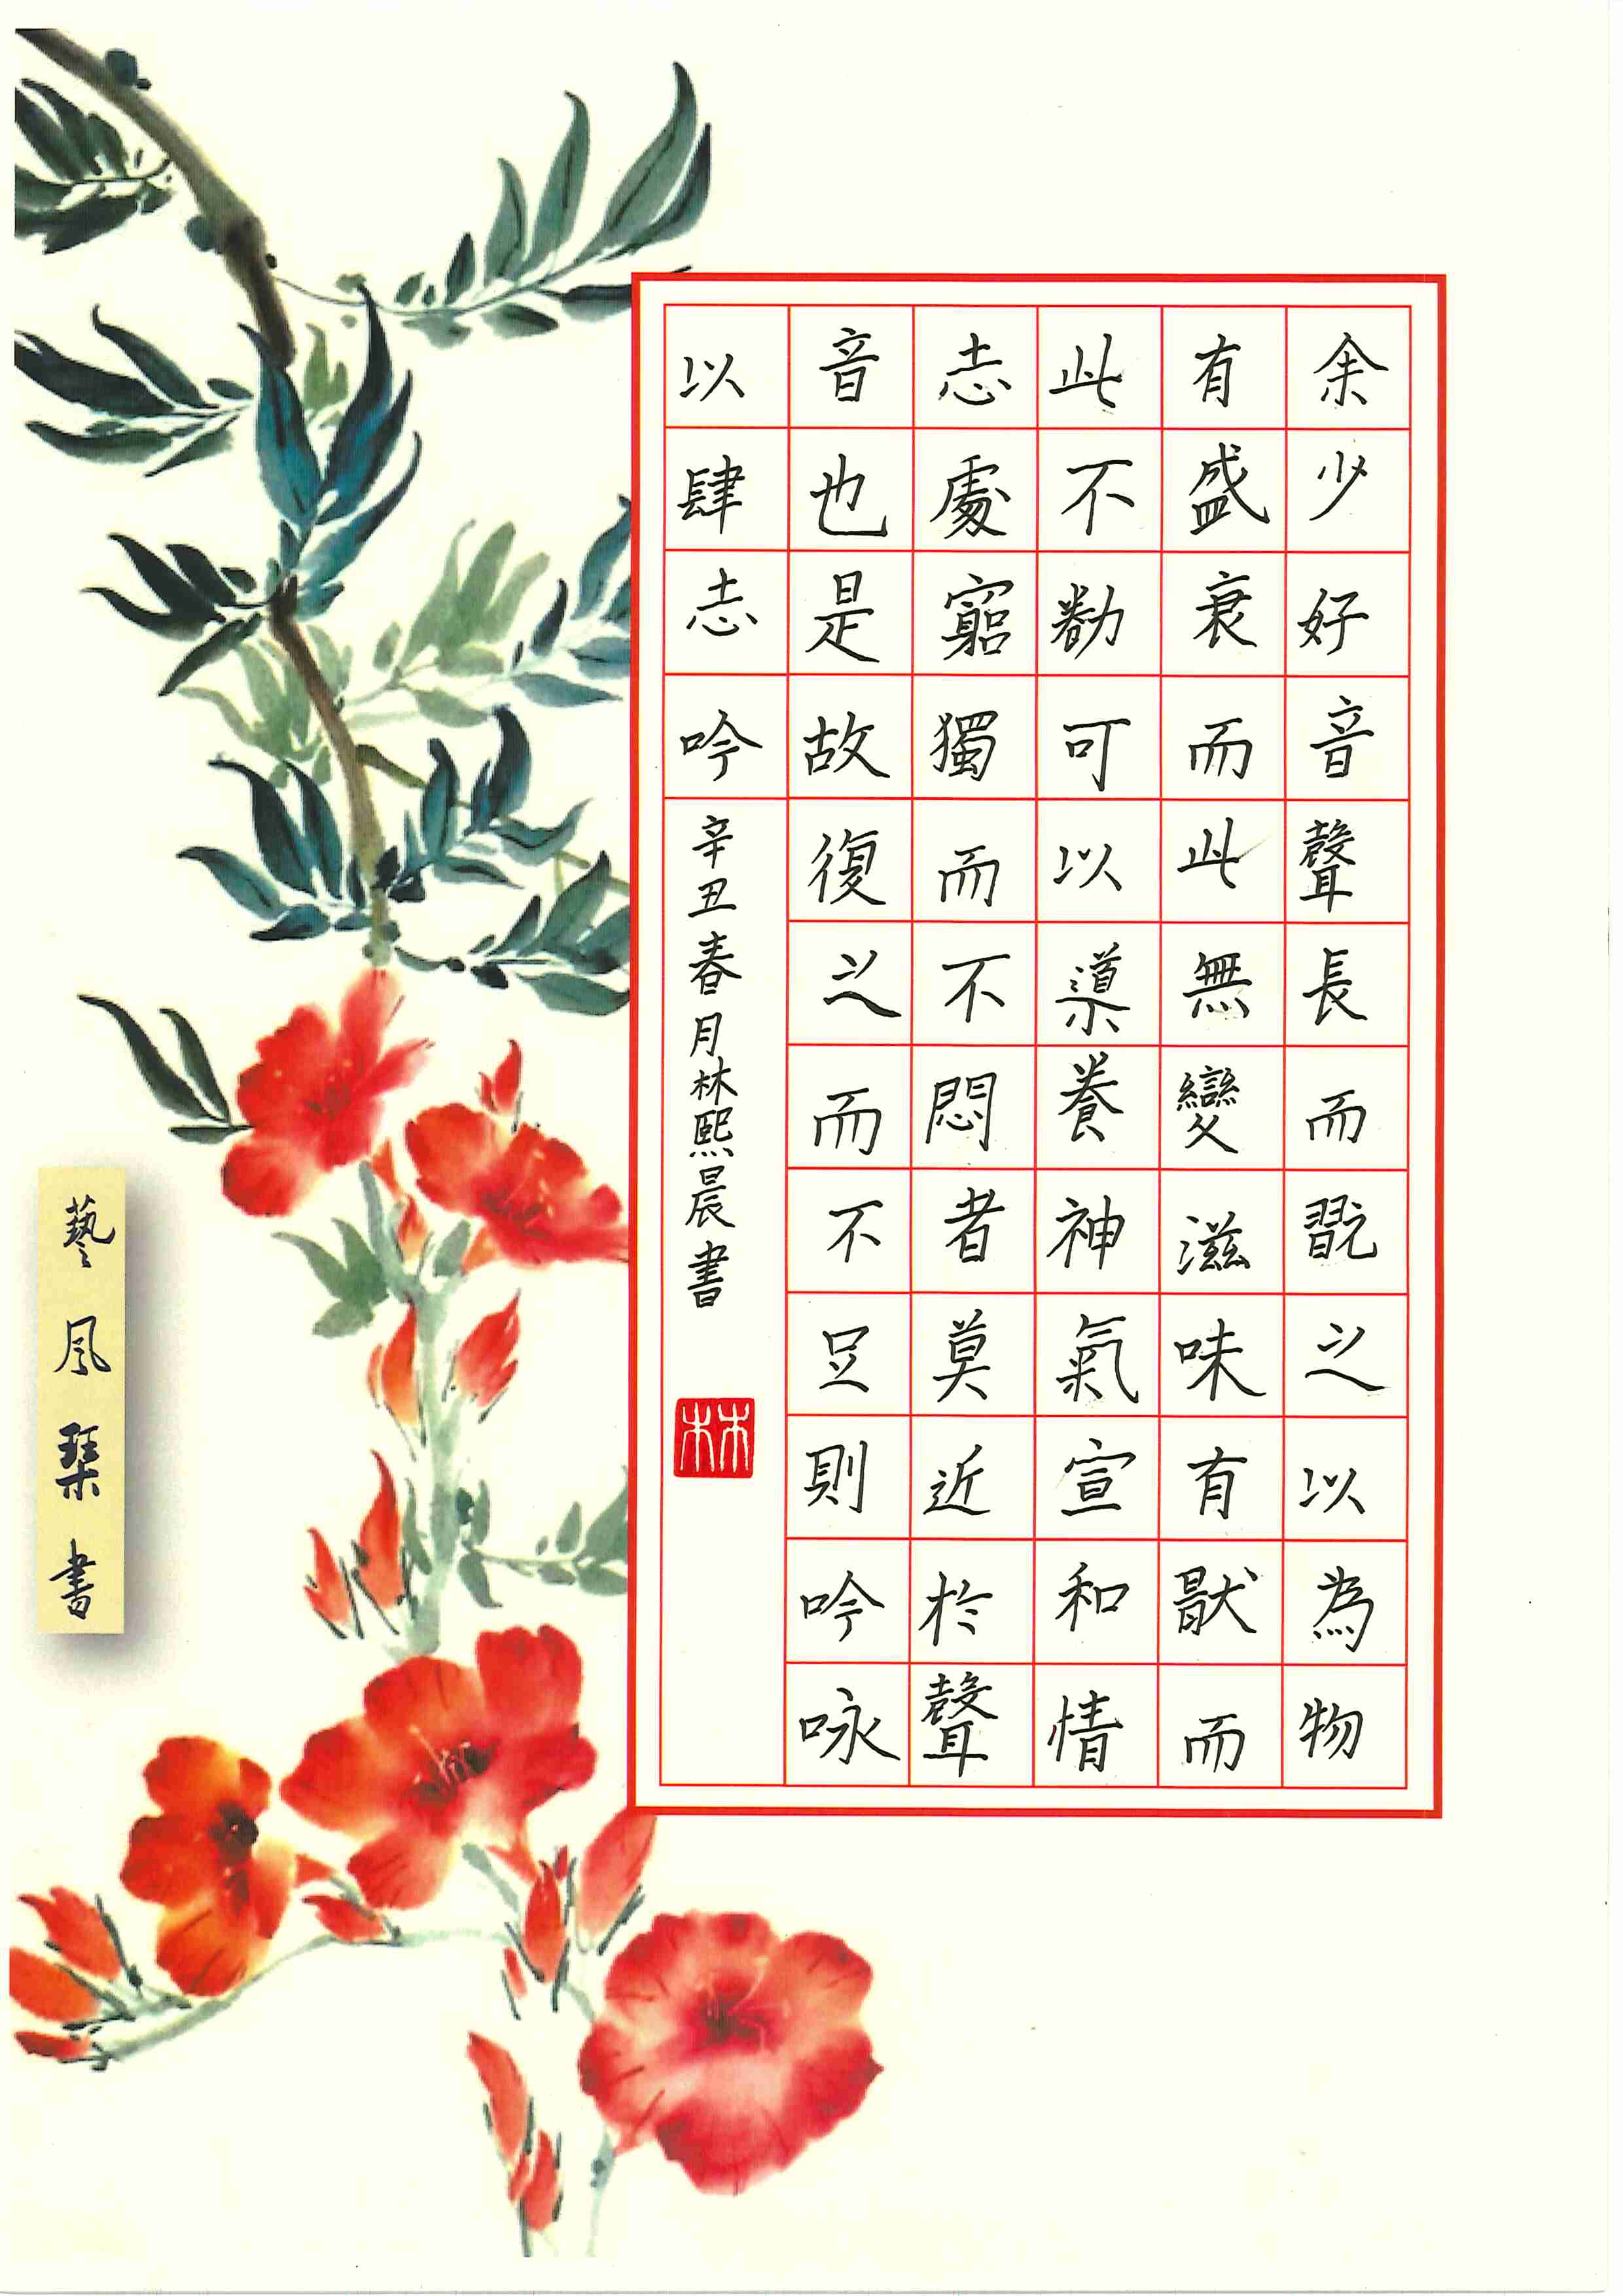 余少好音聲長而翫之以為物
有盛衰而此無變滋味有猒而
此不勌可以導養神氣宣和情
志處竆獨而不悶者莫近於聲
音也是故復之而不足則吟咏
以肆志吟
辛丑春月林熙晨書
林
藝風琹書